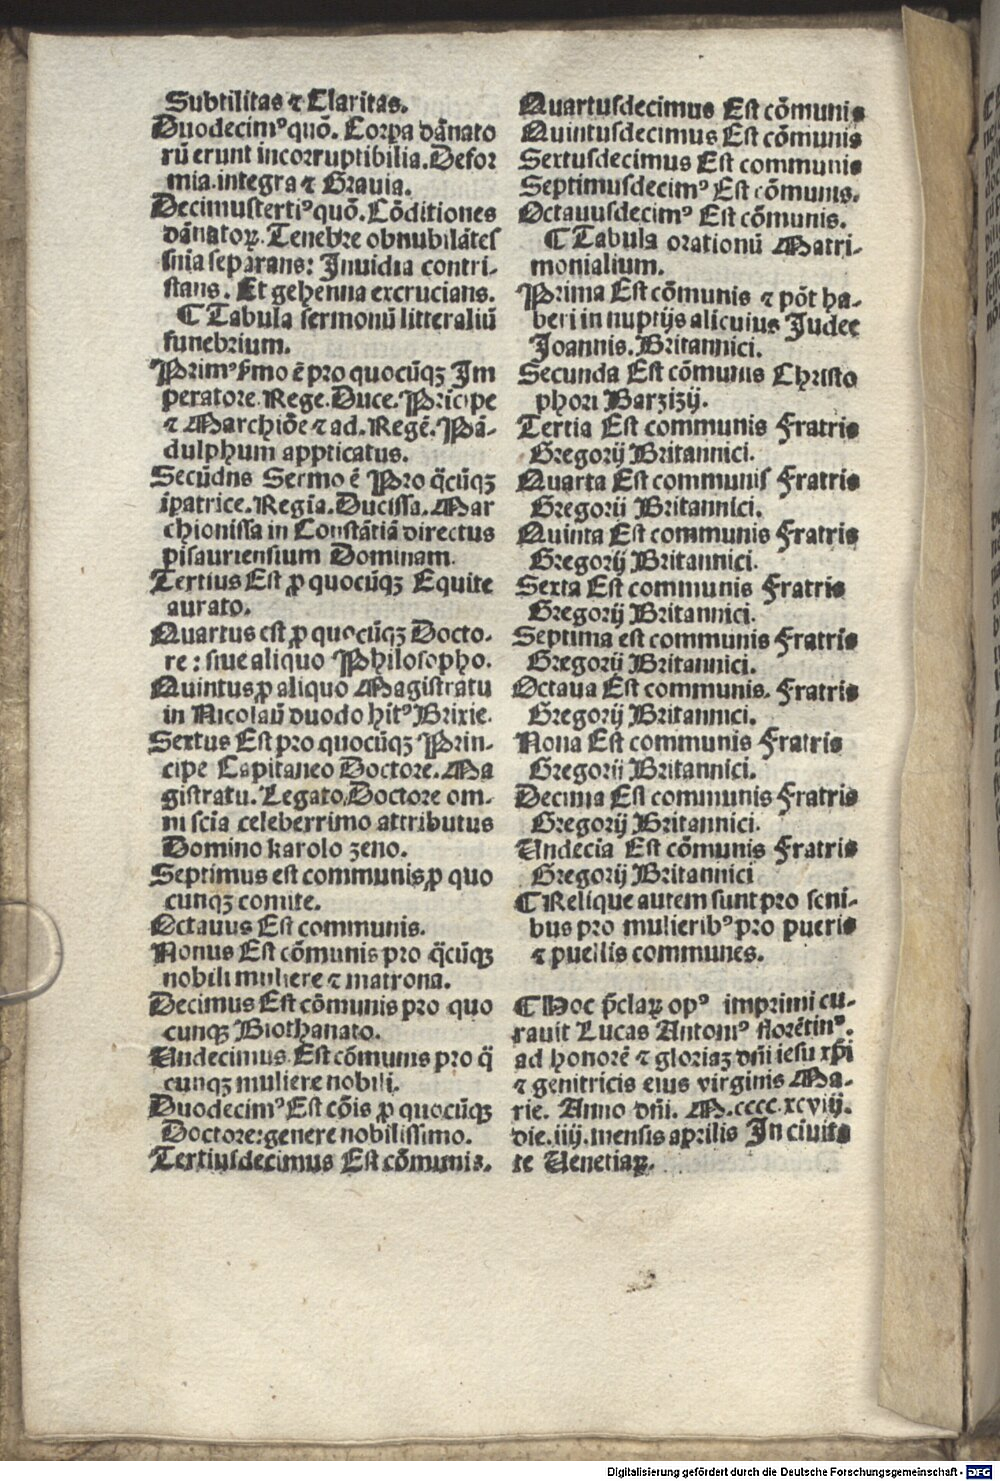 Subtilitas ⁊ Claritas.
Duodecimꝰ quō. Corpa dānato
rū erunt incorruptibilia. Defor
mia. integra ⁊ Grauia.
Decimustertiꝰ quō. Cōditiones
dānatoꝝ. Tenebre obnubilātes
snia separans: Inuidia contri-
stans. Et gehenna excrucians.
¶ Tabula sermonū litteraliū
funebrium.
Primꝰ ẜmo ē pro quocūqꝫ Im
peratore. Rege. Duce. Prīcipe
⁊ Marchiōe ⁊ ad. Regē. Pā-
dulphum appticatus.
Secūdns Sermo ē Pro q̄cūqꝫ
īpatrice. Regīa. Ducissa. Mar
chionissa in Constātiā directus
pisauriensium Dominam.
Tertius Est ꝓ quocūqꝫ Equite
aurato.
Quartus est ꝓ quocūqꝫ Docto-
re: siue aliquo Philosopho.
Quintus ꝓ aliquo Magistratu
in Nicolaū duodo hitꝰ Brixie.
Sextus Est pro quocūqꝫ Prin-
cipe Capitaneo Doctore. Ma
gistratu. Legato. Doctore om-
ni scīa celeberrimo attributus
Domino karolo zeno.
Septimus est communis ꝓ quo
cunqꝫ comite.
Octauus Est communis.
Nonus Est cōmunis pro q̄cūqꝫ
nobili muliere ⁊ matrona.
Decimus Est cōmunis pro quo
cunqꝫ Biothanato.
Undecimus Est cōmunis pro q̄
cunqꝫ muliere nobili.
Duodecimꝰ Est cōis ꝓ quocūqꝫ
Doctore: genere nobilissimo.
Tertiusdecimus Est cōmunis.
Quartusdecimus Est cōmunis
Quintusdecimus Est cōmunis
Sextusdecimus Est communis
Septimusdecimꝰ Est cōmunis.
Octauusdecimꝰ Est cōmunis.
¶ Tabula orationū Matri-
monialium.
Prima Est cōmunis ⁊ pōt ha-
beri in nuptijs alicuius Judee
Joannis. Britannici.
Secunda Est cōmunis Christo
phori Barzizij.
Tertia Est communis Fratris
Gregorij Britannici.
Quarta Est communis Fratris
Gregorij Britannici.
Quinta Est communis Fratris
Gregorij Britannici.
Sexta Est communis Fratris
Gregorij Britannici.
Septima est communis Fratris
Gregorij Britannici.
Octaua Est communis. Fratris
Gregorij Britannici.
Nona Est communis Fratris
Gregorii Britannici.
Decima Est communis Fratris
Gregorij Britannici.
Undecia Est cōmunis Fratris
Gregorij Britannici
¶ Relique autem sunt pro seni-
bus pro mulieribꝰ pro pueris
⁊ puellis communes.
¶ Hoc p̄claꝝ opꝰ imprimi cu-
rauit Lucas Antoniꝰ florētinꝰ.
ad honorē ⁊ gloriaꝫ dn̄i iesu xp̄i
⁊ genitricis eius virginis Ma-
rie. Anno dn̄i. M.cccc.xcviij.
die. iiij. mensis aprilis In ciuita
te Uenetiaꝝ.
Digitalisierung gefördert durch die Deutsche Forschungsgemeinschaft - DFG